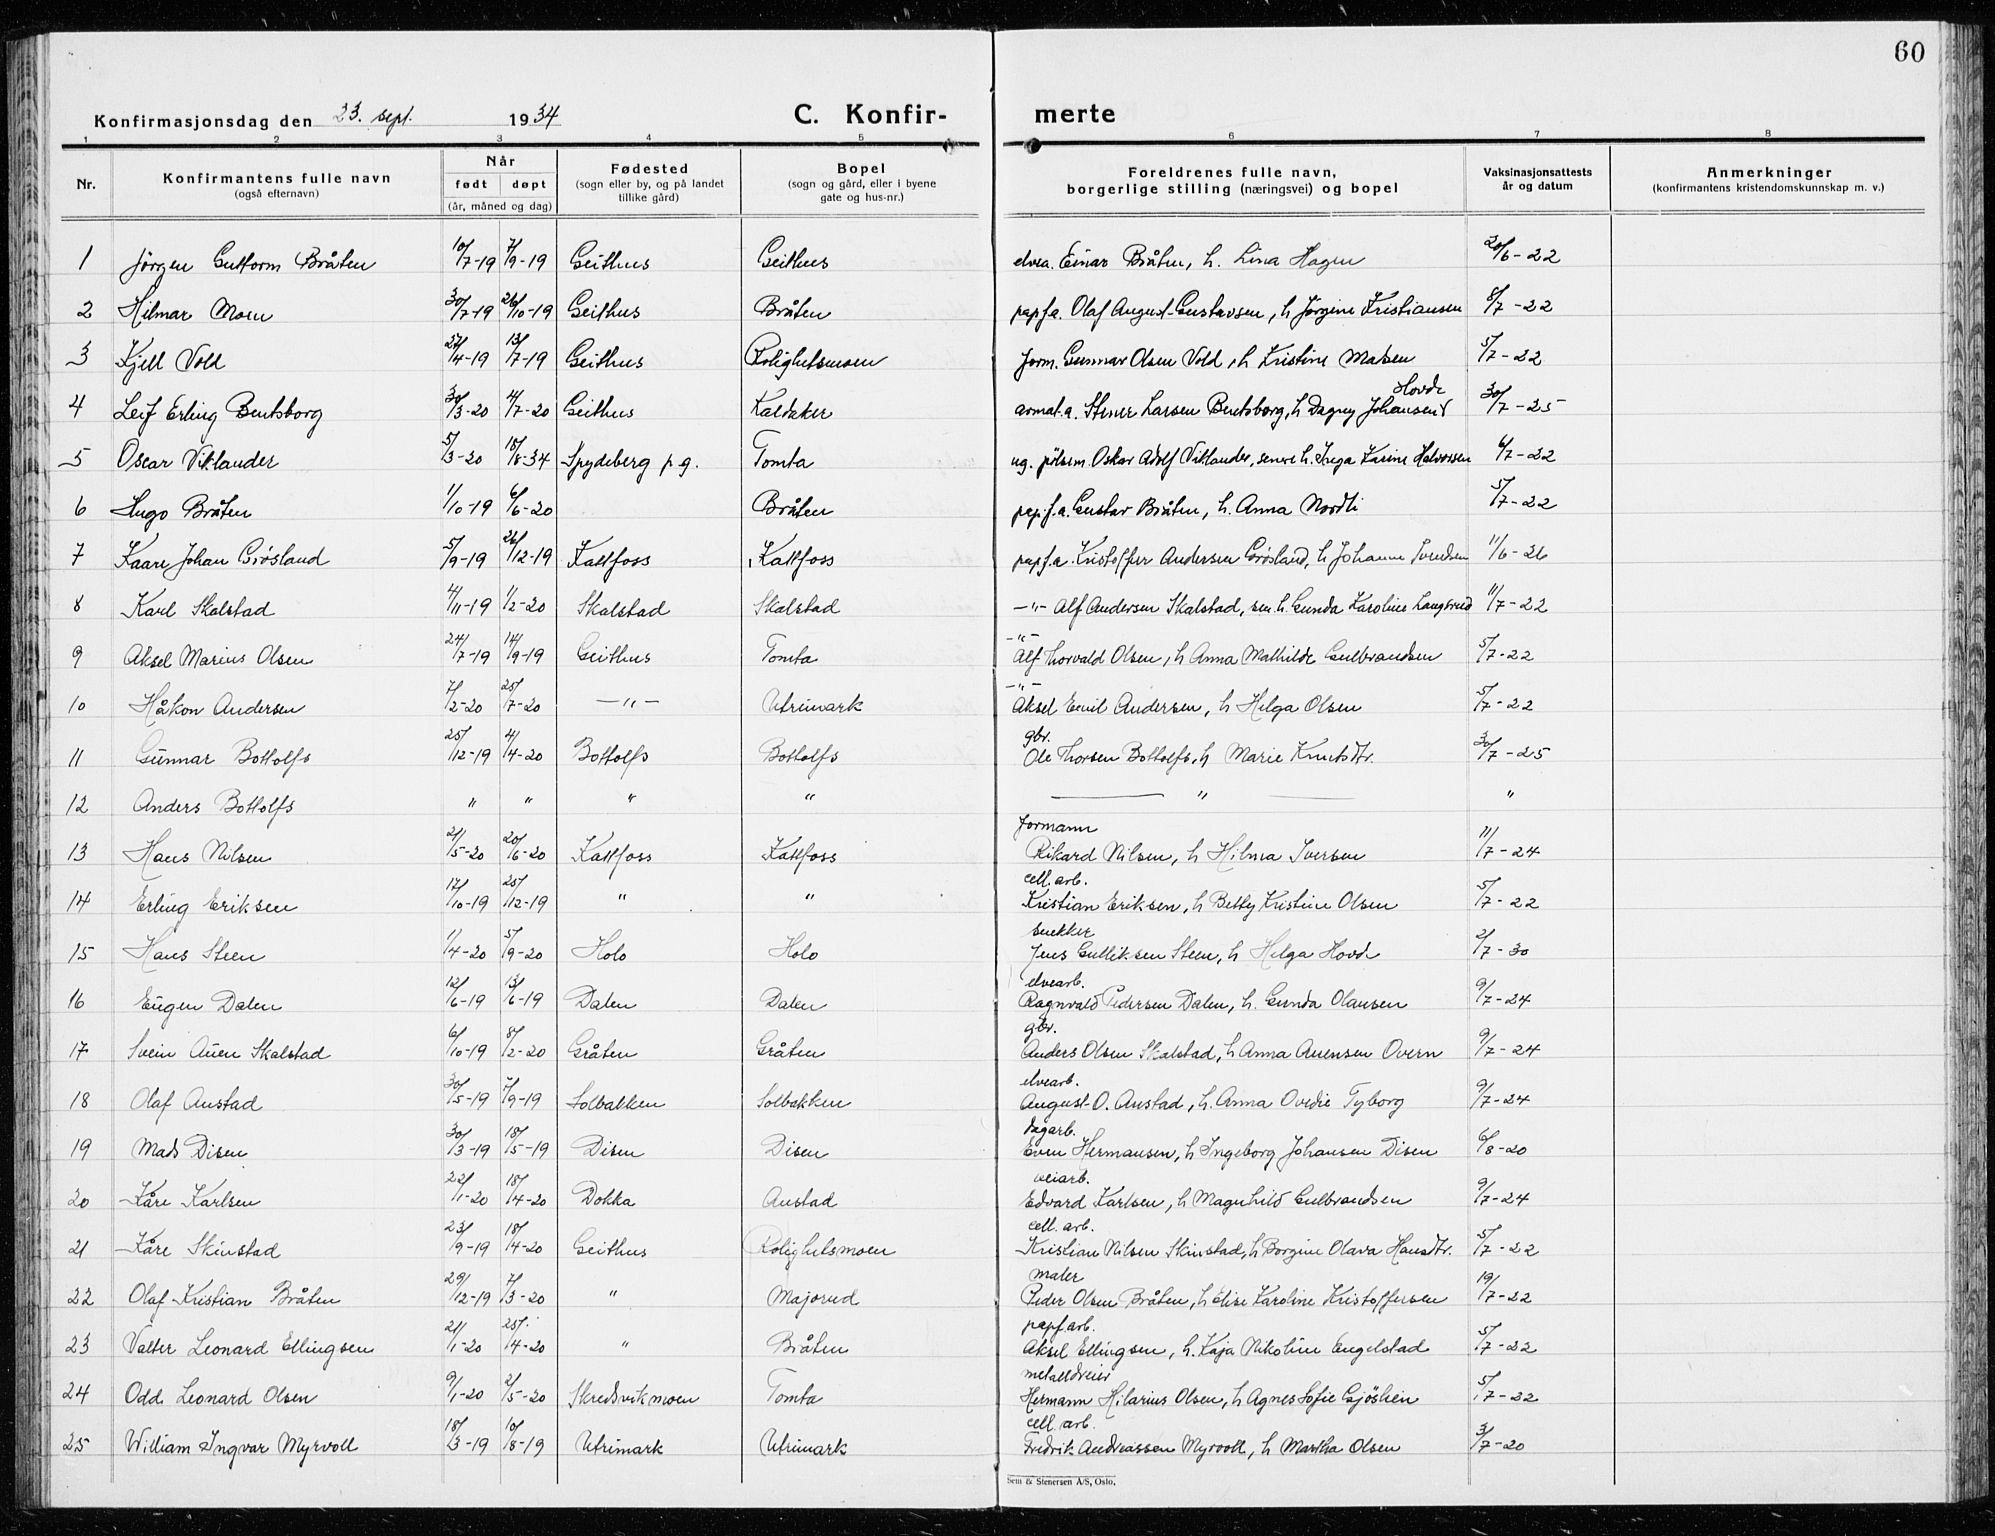 60
Konfirmasjonsdag den 23. sept. 1934 C. Konfir- merte
1 2 3 4 5 6 7 8
Nr. Konfirmantens fulle navn (også efternavn) Når født døpt (år, måned og dag) Fødested (sogn eller by, og på landet tillike gård) Bopel (sogn og gård, eller i byene gate og hus-nr.) Foreldrenes fulle navn, borgerlige stilling (næringsvei) og bopel Vaksinasjonsattests år og datum Anmerkninger (konfirmantens kristendomskunnskap m. v.)
1 Jörgen Guttorm Bråten 10/7-19 7/9-19 Geithus Geithus elvea. Einar Bråten, h. Lina Hagen 20/6-22
2 Hilmar Moen 30/7-19 26/10-19 Geithus Bråten papf.a. Olaf August Gustavsen, h Jörgine Kristiansen 8/7-22
3 Kjell Vold 27/4-19 13/7-19 Geithus Rolighetsmoen form. Gunnar Olsen Vold, h Kristine Madsen 5/7-22
4 Leif Erling Bentsborg 30/3-20 4/7-20 Geithus Kaldaker armat.a. Stener Larsen Bentsborg, h Dagny Johansen Hovde 30/7-25
5 Oscar Viklander 5/3-20 18/8-34 Spydeberg p.g. Tomta ug. pölsem. Oskar Adolf Viklander, senere h. Inga Karine Halvorsen 6/7-22
6 Hugo Bråten 1/10-19 6/6-20 Bråten pap.f.a. Gustav Bråten, h. Anna Nordli 5/7-22
7 Kaare Johan Grösland 5/9-19 26/12-19 Kattfoss Kattfoss papf.a. Kristoffer Andersen Grösland, h Johanne Svendsen 11/6-26
8 Karl Skalstad 4/11-19 1/2-20 Skalstad Skalstad -"- Alf Andersen Skalstad, sen. h. Gunda Karoline Langerud 11/7-22
9 Aksel Marius Olsen 24/7-19 14/9-19 Geithus Tomta -"- Alf Thorvald Olsen, h Anna Mathilde Gulbrandsen 5/7-22
10 Håkon Andersen 7/2-20 25/7-20 -"- Utrimark -"- Aksel Emil Andersen, h Helga Olsen 5/7-22
11 Gunnar Bottolfs 25/12-19 4/4-20 Bottolfs Bottolfs gbr. Ole Thorsen Bottolfs, h Marie Knutsdtr. 30/7-25
12 Anders Bottolfs " " " " — " — "
13 Hans Nilsen 2/5-20 20/6-20 Kattfoss Kattfoss formann Rikard Nilsen, h Hilma Iversen 11/7-24
14 Erling Eriksen 17/10-19 25/12-19 " " cell. arb. Kristian Eriksen, h Betty Kristine Olsen 5/7-22
15 Hans Steen 1/4-20 5/9-20 Holo Holo snekker Jens Gulliksen Steen, h Helga Hovde 2/7-30
16 Eugen Dalen 12/6-19 13/6-19 Dalen Dalen elvearb. Ragnvald Pedersen Dalen, h. Gunda Olausen 9/7-24
17 Svein Auen Skalstad 6/10-19 8/2-20 Gråten Gråten gbr. Anders Olsen Skalstad, h Anna Auensen Overn 9/7-24
18 Olaf Austad 30/5-19 7/9-19 Solbakken Solbakken elvearb. August O. Austad, h. Anna Ovedie Tyborg 9/7-24
19 Mads Disen 30/3-19 18/5-19 Disen Disen dagarb. Even Hermansen, h Ingeborg Johansen Disen 6/8-20
20 Kåre Karlsen 22/1-20 18/4-20 Dokka Austad veiarb. Edvard Karlsen, h Magnhild Gulbrandsen 9/7-24
21 Kåre Skinstad 23/9-19 18/4-20 Geithus Rolighetsmoen cell. arb. Kristian Nilsen Skinstad, h Borgine Olava Hansdtr. 5/7-22
22 Olaf Kristian Bråten 29/12-19 7/3-20 " Majorud maler Peder Olsen Bråten, h Elise Karoline Kristoffersen 19/7-22
23 Valter Leonard Ellingsen 21/1-20 25/4-20 " Bråten papf.arb. Aksel Ellingsen, h. Kaja Nikoline Engelstad 5/7-22
24 Odd Leonard Olsen 9/1-20 2/5-20 Skredsvikmoen Tomta metalldreier Hermann Hilarius Olsen, h Agnes Sofie Gjöslien 5/7-22
25 William Ingvar Myrvoll 18/3-19 10/8-19 Utrimark Utrimark cell. arb. Fredrik Andreassen Myrvoll, h Martha Olsen 3/7-20
Sem & Stenersen A/S, Oslo.